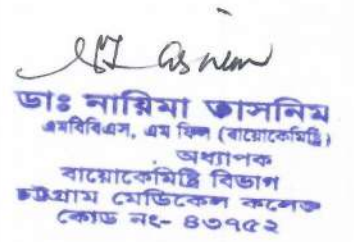 ডাঃ নায়িমা তাসনিম
এমবিবিএস, এম ফিল (বায়োকেমিষ্ট্রি)
অধ্যাপক
বায়োকেমিষ্ট্রি বিভাগ
চট্টগ্রাম মেডিকেল কলেজ
কোড নং- ৪৩৭৫২